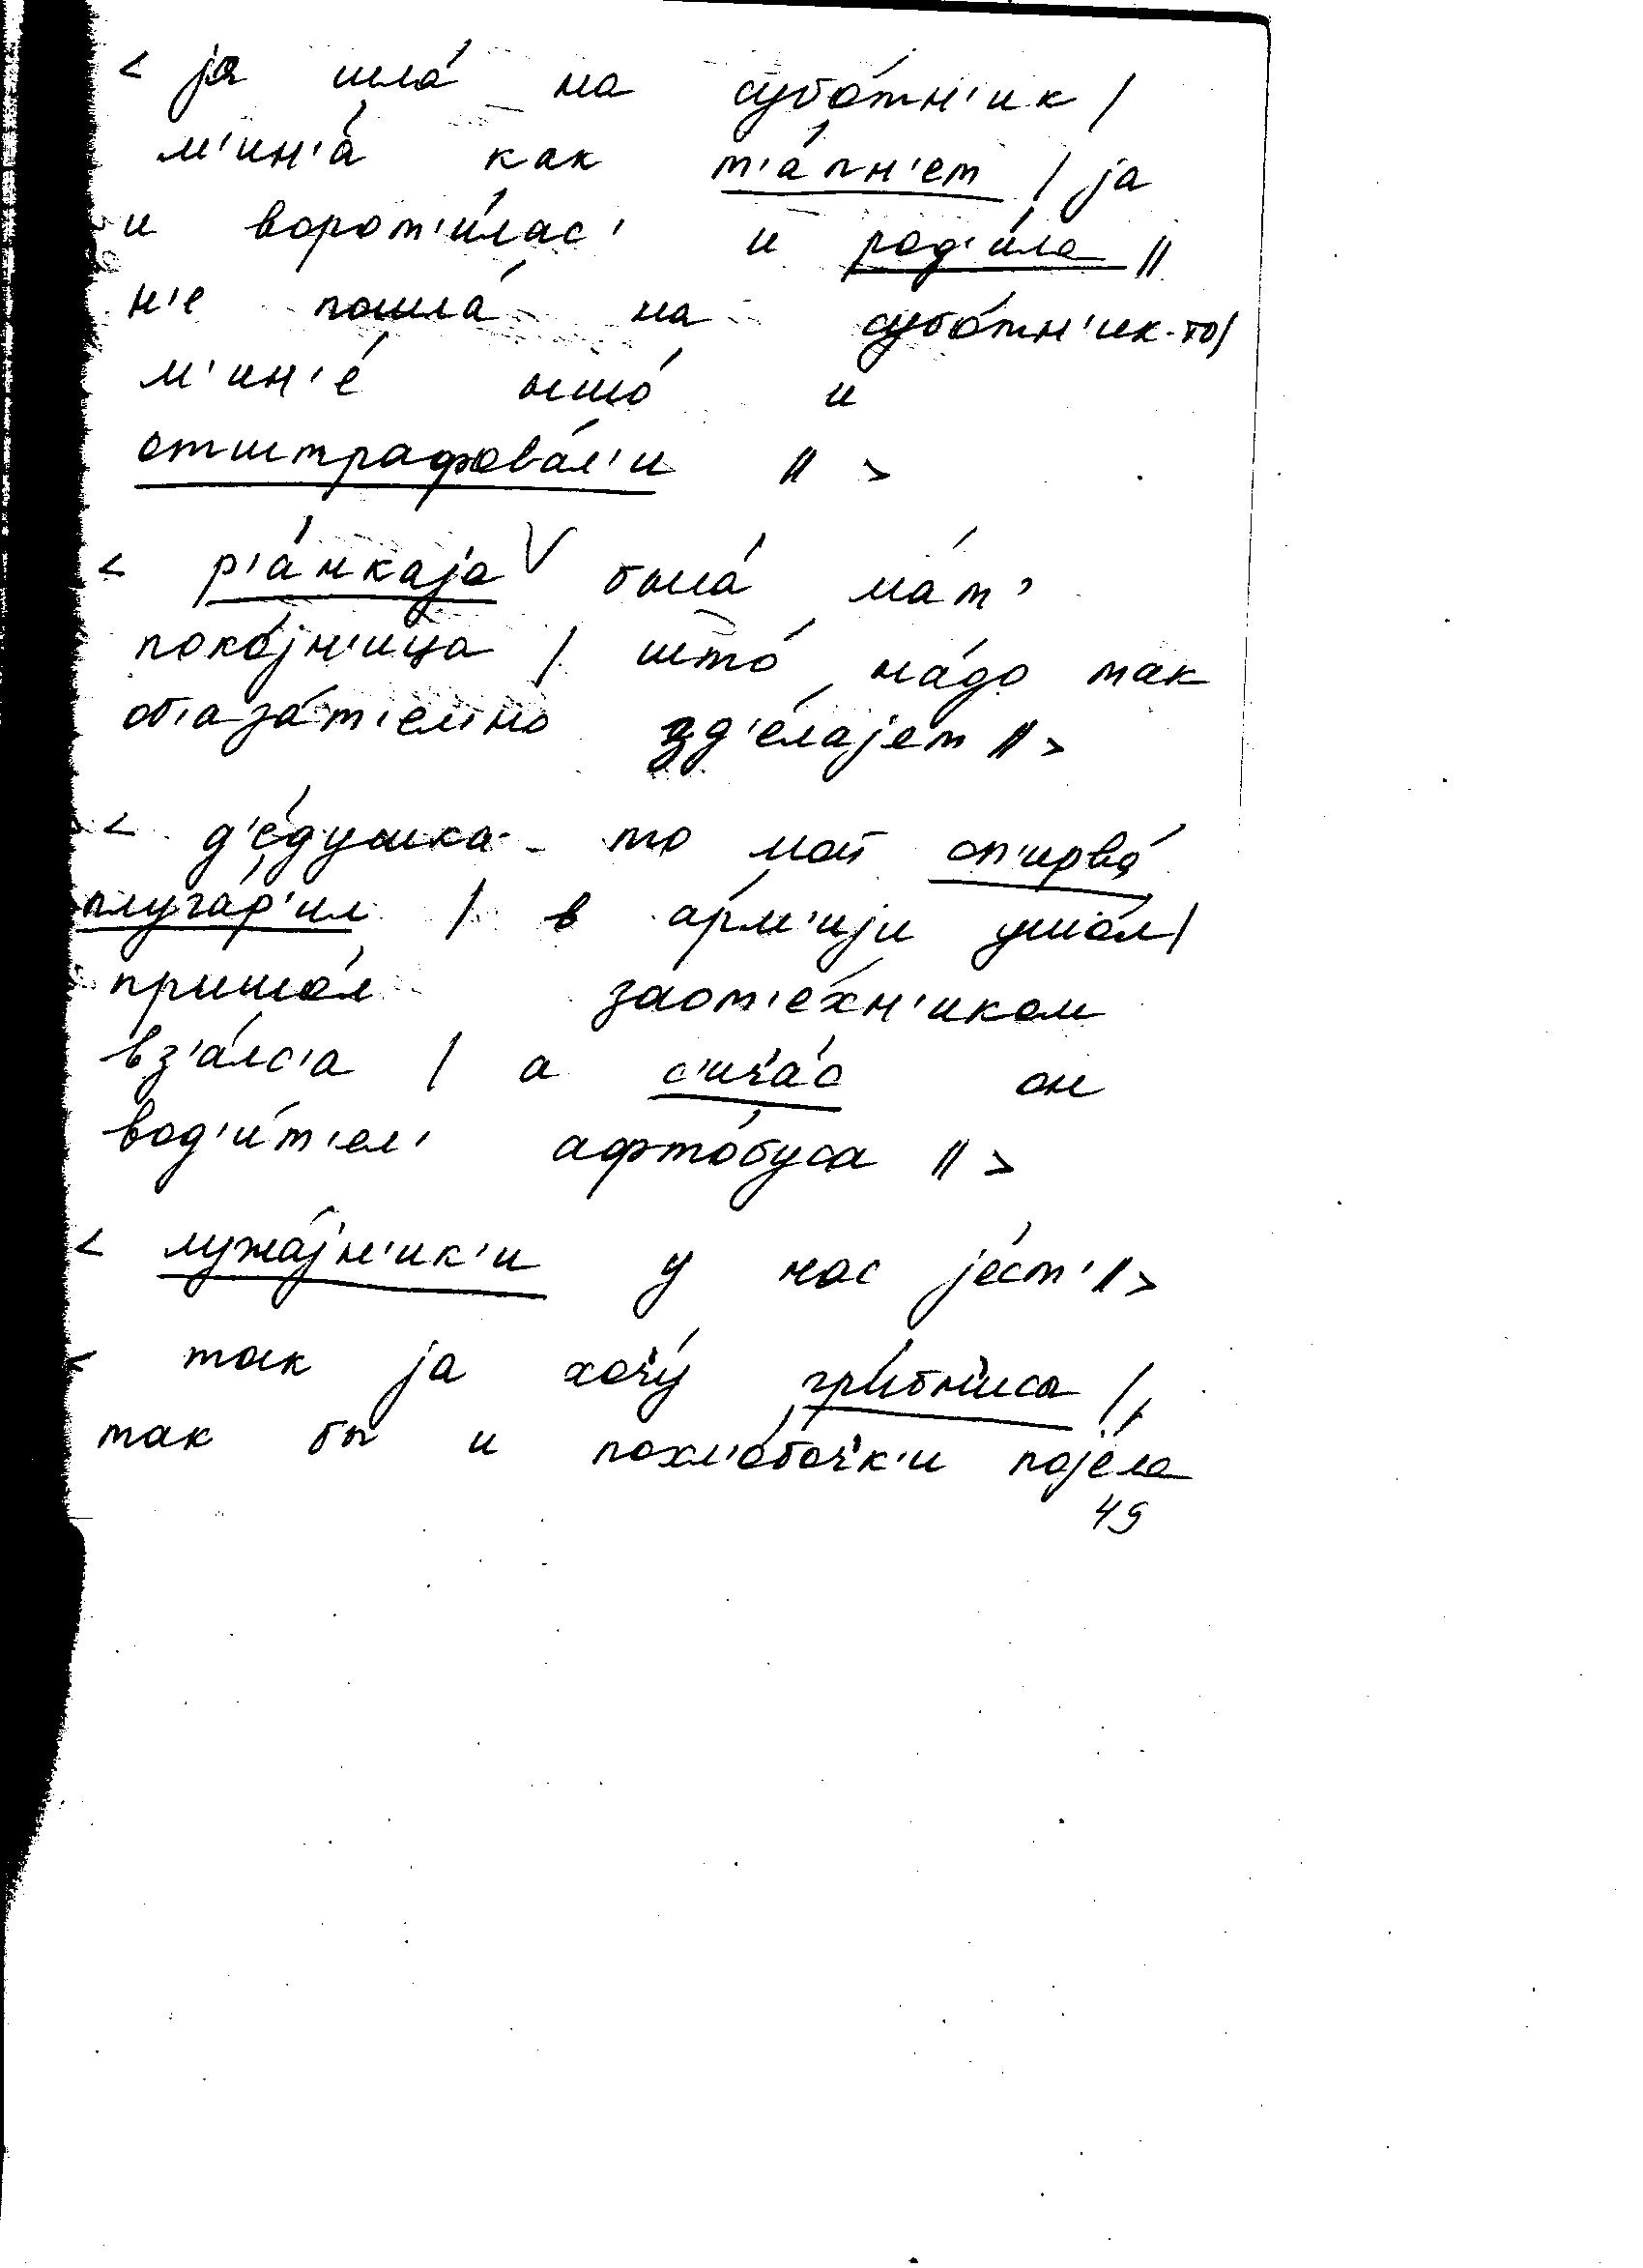 < jа шла́ на субо́тн'ик /
м'ин'а́ как т'а́пн'ет / jа
и ворот'и́лас' и род'и́ла //
н'е пошла́ на субо́тн'ик-то /
м'ин'е́ ышо́ и
отштрафова́л'и // >
< р'а́нкаjа была́ ма́т'
поко́jн'ица / што́ на́до так
об'аза́т'ел'но зд'е́лаjет // >
< д'е́душка-то мой сп'ирва́
плуга́р'ил / в а́рм'иjи ушо́л /
пришо́л заот'е́хн'иком
вз'а́лс'а / а с'ич'а́с он
вод'и́т'ел' афто́буса // >
< лужа́jн'ик'и у нас jе́ст' // >
< так jа хоч'у́ гри́бн'иса /,
так бы и похл'о́боч'к'и поjе́ла
49